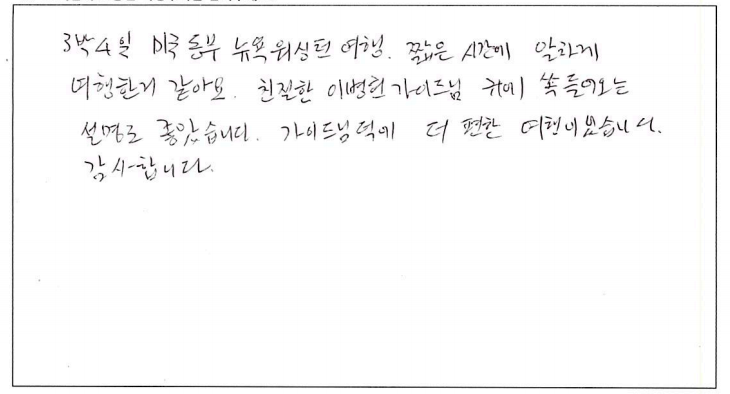 3박4일 미국 동부 뉴욕워싱턴 여행. 짧은 시간에 알차게
여행한거 같아요. 친절한 이병헌가이드님 귀에 쏙 들어오는
설명도 좋았습니다. 가이드님덕에 더 편한 여행이었습니다.
감사합니다.